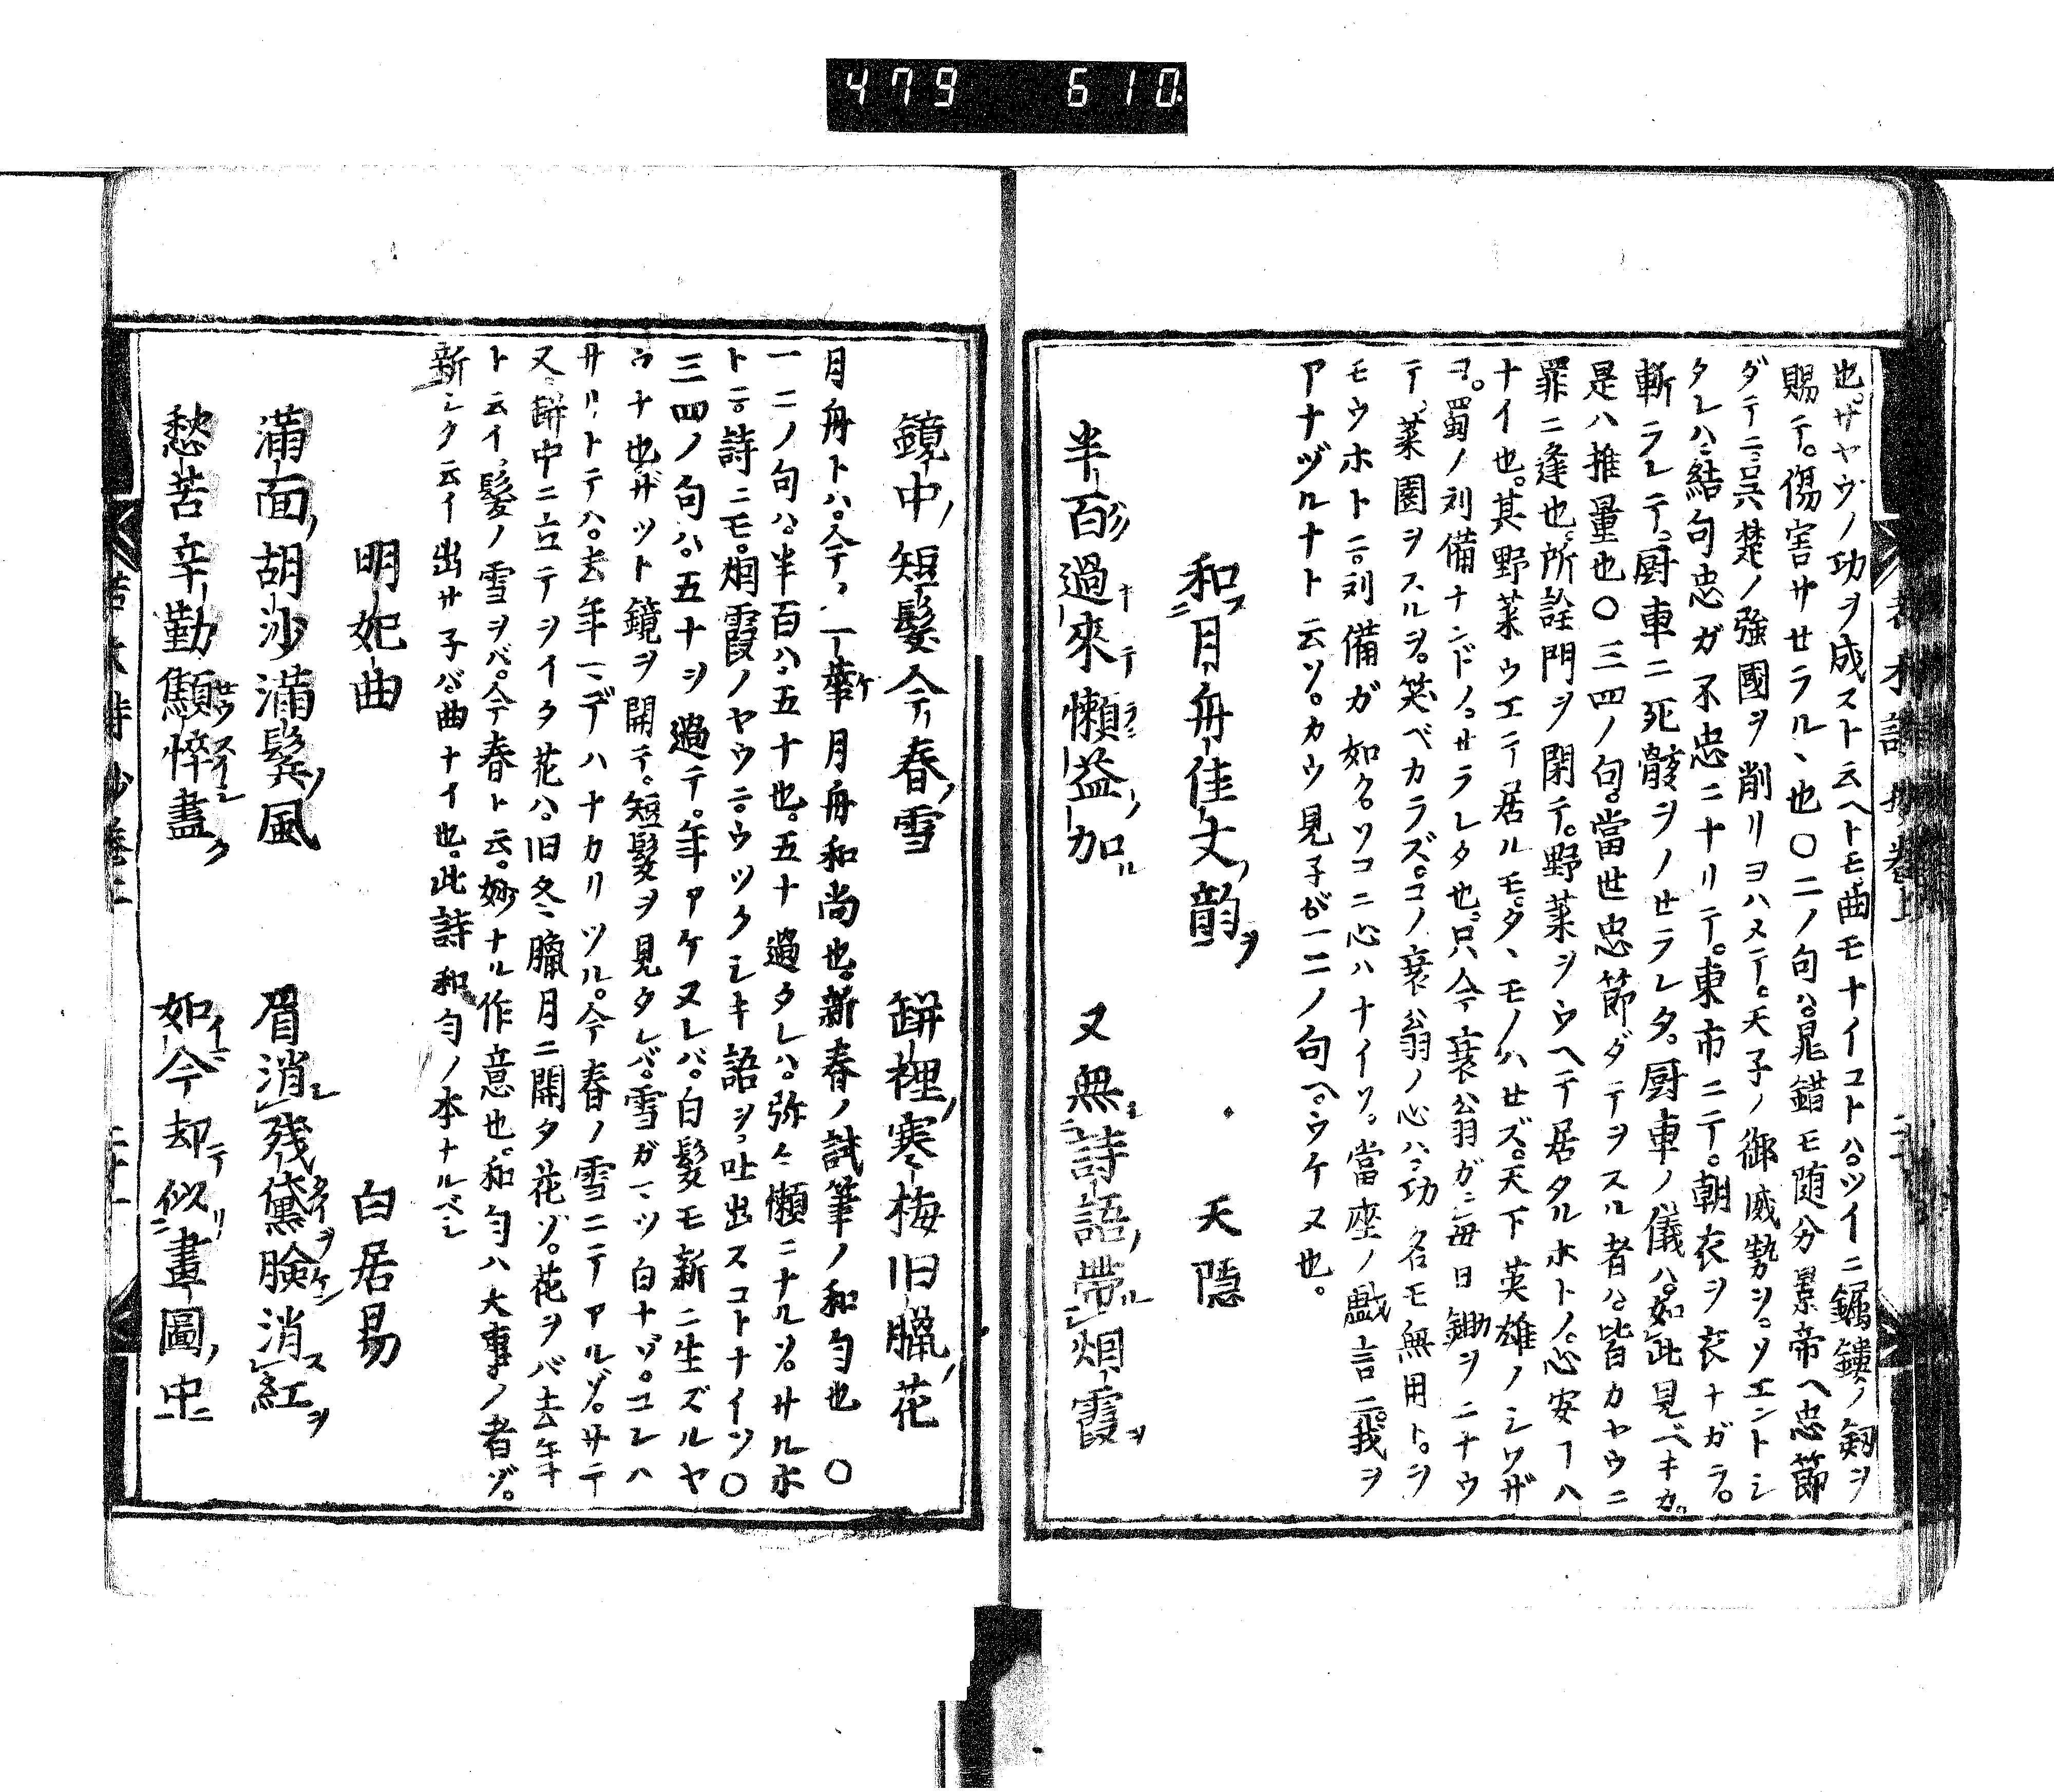 479 610.
也。サヤウノ功ヲ成スト云ヘトモ、曲モナイコトハ。ツイニ鑃鏤ノ劔ヲ
賜テ。傷害サセラル丶也〇二ノ句ハ。晁錯モ随分景帝ヘ忠節
ダテニ。呉楚ノ強國ヲ削リヨハステ。天子ノ御威勢ヲ。ソエントシ
タレハ。結句忠ガ不忠ニナリテ。東市ニテ。朝衣ヲ衣ナガラ。
斬ラレテ。厨車ニ死骸ヲノセラレタ。厨車ノ儀ハ。如此見ベキカ。
是ハ推量也〇三四ノ句。當世忠節ダテヲスル者ハ皆カヤウニ
罪ニ逢也。所詮門ヲ閉テ。野菜ヲウヘテ居タルホトノ。心安フハ
ナイ也。其野菜ウエテ居ルモ。タ丶モノハセズ。天下英雄ノシワザ
ヲ。蜀ノ刘備ナンドノ。サラレタ也。只今裴公翁ガ二毎日鋤ヲニナウ
テ。菜園ヲスルヲ。笑ベカラズ。コノ裴公翁ノ心ハ。功名モ無用ト。ヲ
モウホトニ。刘備ガ如ク。ソコニ心ハナイソ。當座ノ戯言ニ。我ヲ
アナヅルナト云ソ。カウ見子ガ一二ノ句ヘ。ウケヌ也。
和月舟佳丈韵 天隠
半百過來懶益加 又無詩語帶烟霞
鏡中短髮今春雪 缾裡寒梅旧臘花
月舟トハ。今ノ一華月舟和尚也。新春ノ試筆ノ和句也〇
一二ノ句ハ。半百ハ。五十也。五十過タレハ。弥々懶ニナルソ。サルホ
トニ詩ニモ。烟霞ノヤウニウツクシキ語ヲ。吐出スコトナイソ〇
三四ノ句ハ。五十ヲ過テ。年アケヌレバ。白髮モ新ニ生ズルヤ
ウナ也。ザット鏡ヲ開テ。短髮ヲ見タレバ。雪ガ一ツ白ナゾ。コレハ
サルトテハ。去年マデハナカリツル。今春ノ雪ニテアルゾ。サテ
又缾中ニ立テヲイタ花ハ。旧冬臘月ニ開タ花ゾ。花ヲバ去年
ト云イ。髮ノ雪ヲバ。今春ト云。妙ナル作意也。和句ハ大事ノ者ゾ。
新シク云イ出サ子バ。曲ナイ也。此詩和句ノ本ナルベシ
明妃曲 白居易
滿面胡沙滿鬂風 眉消殘黛臉消紅
愁苦辛勤顦悴盡 如今却似畫圖中